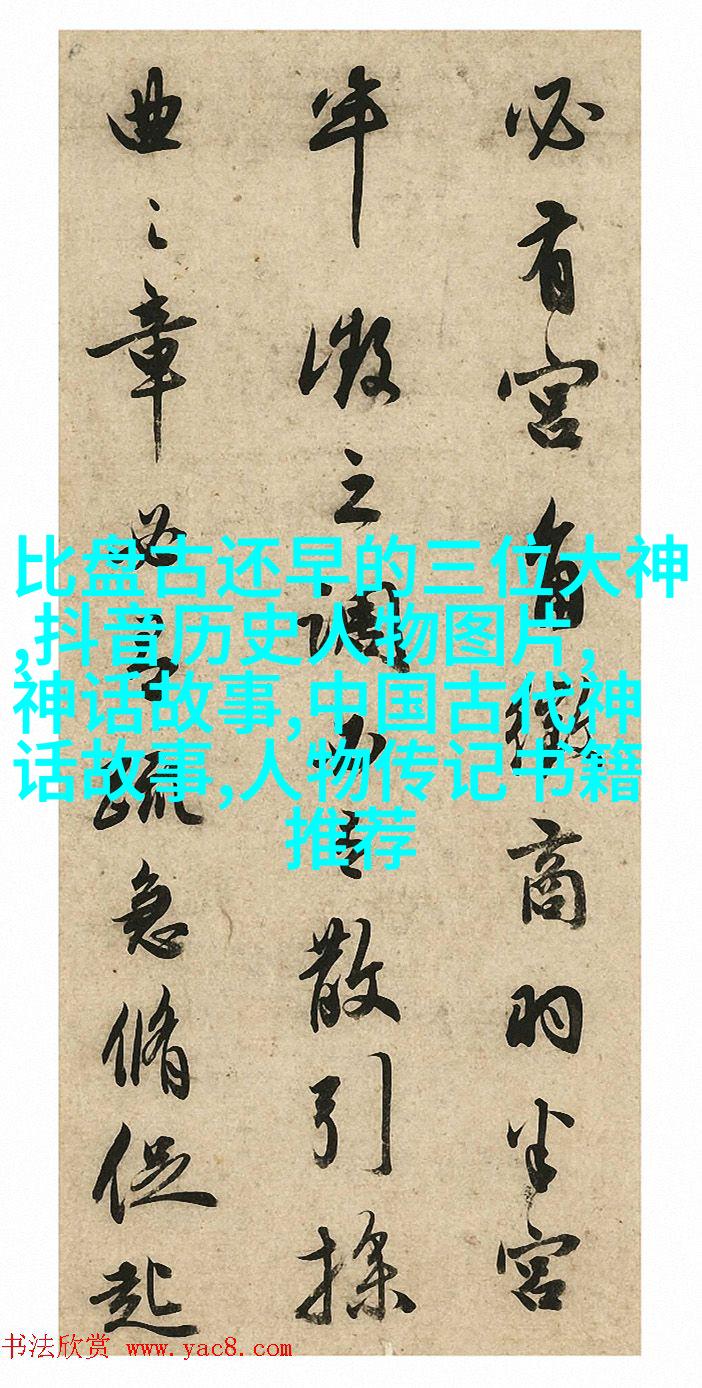 必有宫角徵商羽半宫
半徵之調必有散引操
曲之章必有疏急脩促起
比盘古还早的三位大神
,抖音历史人物图片,
神话故事,中国古代神
话故事,人物传记书籍
推荐
书法欣赏 www.yac8.com